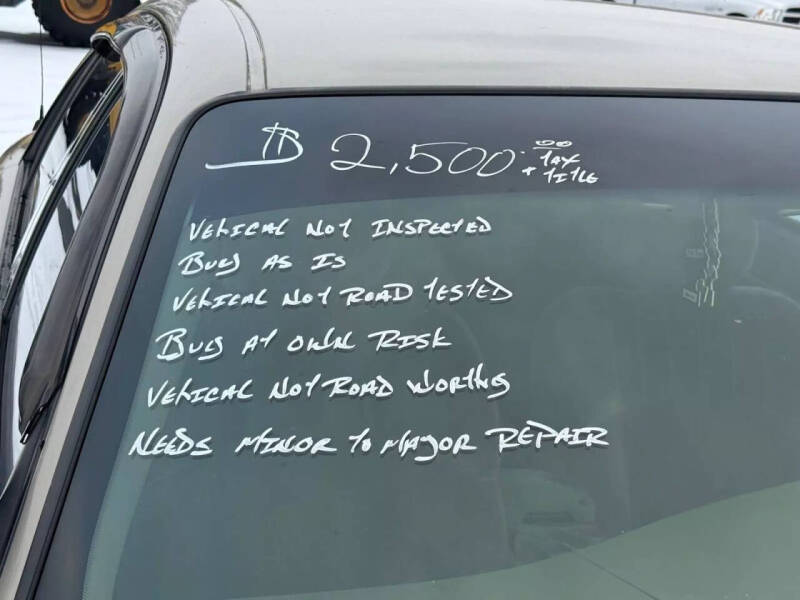 $ 2,500.00 + TAX TITLE
VEHICAL NOT INSPECTED
BUY AS IS
VEHICAL NOT ROAD TESTED
BUY AT OWN RISK
VEHICAL NOT ROAD WORTHY
NEEDS MINOR TO MAJOR REPAIR